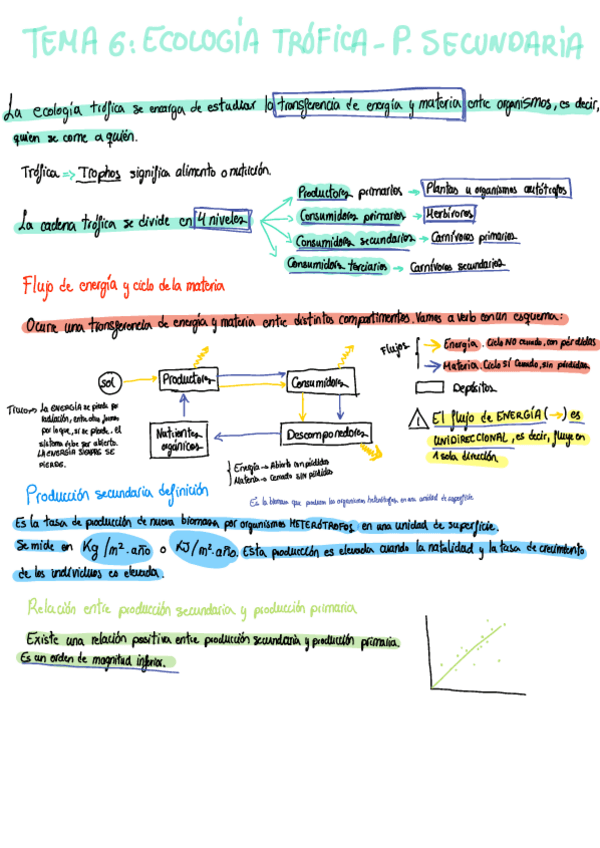 TEMA 6: ECOLOGÍA TRÓFICA - P. SECUNDARIA
La ecología trófica se encarga de estudiar la transferencia de energía y materia entre organismos, es decir,
quien se come a quién.
Trófica => Trophos significa alimento o nutrición.
La cadena trófica se divide en 4 niveles
Productores primarios → Plantas u organismos autótrofos
Consumidores primarios → Herbívoros
Consumidores secundarios → Carnívoros primarios
Consumidores terciarios → Carnívoros secundarios
Flujo de energía y ciclo de la materia
Ocurre una transferencia de energía y materia entre distintos compartimentos. Vamos a verlo con un esquema:
Flujos
→ Energía. Ciclo NO cerrado, con pérdidas
→ Materia. Ciclo SÍ cerrado, sin pérdidas
Depósitos
SOL
Productores
Consumidores
Nutrientes
orgánicos
Descomponedores
LA ENERGÍA se pierde por
radiación, entre otras formas
por lo que, si se pierde, el
sistema debe ser abierto.
LA ENERGÍA SIEMPRE SE
PIERDE.
Energía → Abierto con pérdidas
Materia → Cerrado sin pérdidas
El flujo de ENERGÍA (→) es
UNIDIRECCIONAL, es decir, fluye en
1 sola dirección
Producción secundaria definición
Es la biomasa que producen los organismos heterótrofos en una unidad de superficie
Es la tasa de producción de nueva biomasa por organismos HETERÓTROFOS en una unidad de superficie.
Se mide en Kg/m².año o KJ/m².año. Esta producción es elevada cuando la natalidad y la tasa de crecimiento
de los individuos es elevada.
Relación entre producción secundaria y producción primaria
Existe una relación positiva entre producción secundaria y producción primaria.
Es un orden de magnitud inferior.